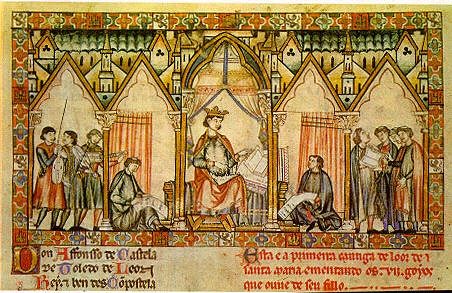 Don Affonso de Castela
de Toledo de Leon
Rey e ben des Cõpostela
Esta e a primeira cantiga de loor de
santa maria ementando os .VII. goyos
que ouve de seu fillo.